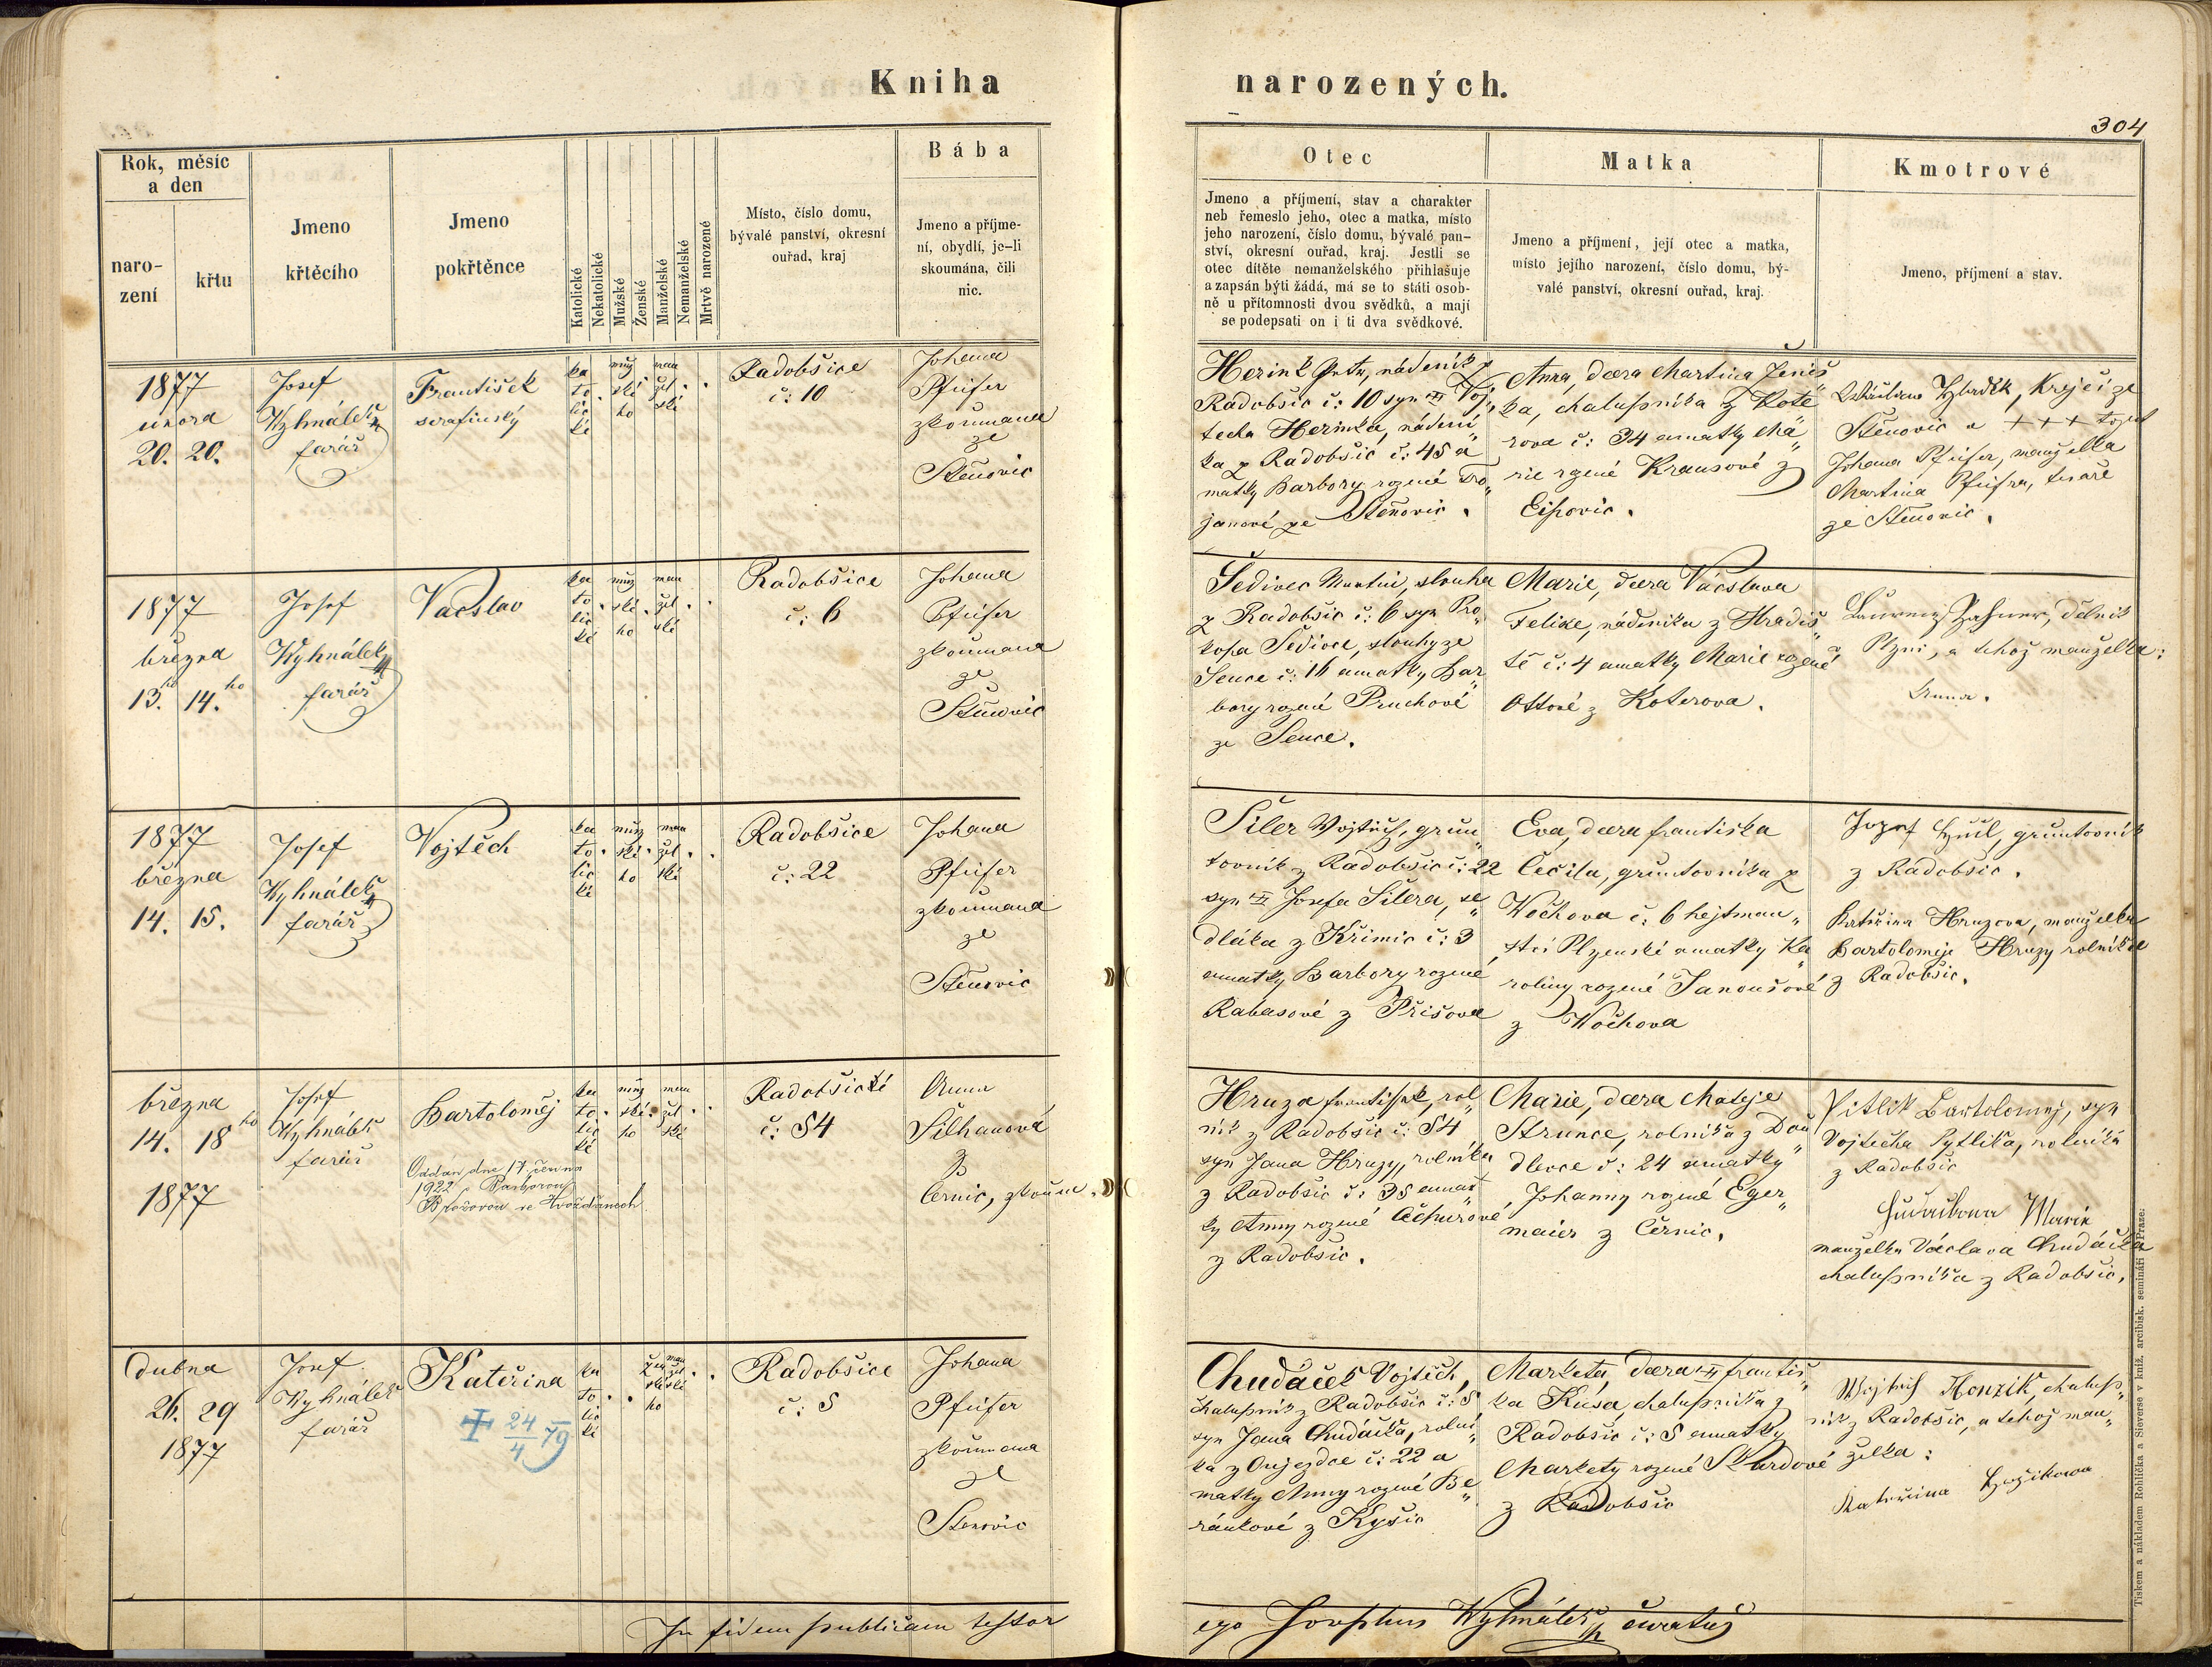 Kniha
narozených.
304
Rok, měsíc
a den
naro-
zení
křtu
Jmeno
křtěcího
Jmeno
pokřtěnce
Katolické
Nekatolické
Mužské
Ženské
Manželské
Nemanželské
Mrtvě narozené
Místo, číslo domu,
bývalé panství, okresní
ouřad, kraj
Bába
Jmeno a příjme-
ní, obydlí, je-li
skoumána, čili
nic.
Otec
Jmeno a příjmení, stav a charakter
neb řemeslo jeho, otec a matka, místo
jeho narození, číslo domu, bývalé pan-
ství, okresní ouřad, kraj. Jestli se
otec dítěte nemanželského přihlašuje
a zapsán býti žádá, má se to státi osob-
ně u přítomnosti dvou svědků, a mají
se podepsati on i ti dva svědkové.
Matka
Jmeno a příjmení, její otec a matka,
místo jejího narození, číslo domu, bý-
valé panství, okresní ouřad, kraj.
Kmotrové
Jmeno, příjmení a stav.
1877
února
20. 20.
Josef
Wyhnálek
farář
František
serafinský
ka
to
lic
ké
muž
ské
ho
man
žel
ské
Radobšice
č: 10
Johana
Pfeifer
zkoumaná
ze
Štěnovic
Herink Petr, nádeník z
Radobšic č: 10 syn Voj„
těcha Herinka, nádení„
ka z Radobšic č: 45 a
matky Barbory rozené Tro„
janové ze Štěnovic.
Anna, dcera Martina Ženíš„
ka, chalupníka z Kote„
rova č: 34 a matky Ma„
rie rzené Krausové z
Eipovic.
Hladík, Krejčí ze
Štěnovic a + + + toput
Johana Pfeifer, manželka
Martina Pfeifra, tesaře
ze Štěnovic.
1877
března
13. 14.ho
Josef
Wyhnálek
farář
Vácslav
ka
to
lic
ké
muž
ské
ho
man
žel
ské
Radobšice
č: 6
Johana
Pfeifer
zkoumaná
ze
Štěnovic
Šedivec Martin, slouha
z Radobšic č: 6 syn Pro„
kopa Šedivce, slouhy ze
Sence č: 16 a matky Bar„
bory rozené Pruchové
ze Sence.
Marie, dcera Vácslava
Felixe, nádeníka z Hradiš„
tě č: 4 a matky Marie rozené
Ottové z Koterova.
Laurenz Zahner, dělník
z Plzni, a téhož manželka:
Anna.
1877
března
14. 15.
Josef
Wyhnálek
farář
Vojtěch
ka
to
lic
ké
muž
ské
ho
man
žel
ské
Radobšice
č: 22
Johana
Pfeifer
zkoumaná
ze
Štěnovic
Šiler Vojtěch, grun„
tovník z Radobšic č: 22
syn Josefa Šilera, se„
dláka z Křimic č: 3
a matky Barbory rozené
Rabasové z Příšova
Eva, dcera Františka
Čečila, gruntovníka z
Wochova č: 6 hejtman„
ství Plzenské a matky Ka„
roliny rozené Janoušové
z Wochova
Jozef, gruntovník
z Radobšic.
Kateřina Hruzova, manželka
Bartoloměje Hruzy rolníka
z Radobšic.
března
14. 18ho
1877
Josef
Wyhnálek
farář
Bartoloměj
Oddán dne 17 června
1922 s Barborou
Brožovou ve Hvožďanech
ka
to
lic
ké
muž
ské
ho
man
žel
ské
Radobšice
č: 54
Anna
Šilhanová
z
Černic, zkoum.
Hruza František, rol„
ník z Radobšic č: 54
syn Jana Hruzy, rolníka
z Radobšic č: 35 a mat„
ky Anny rozené Čechurové
z Radobšic.
Marie, dcera Matěje
Strunce, rolníka z Dou„
dlevce č: 24 a matky
Johanny rozené Eger„
maier z Černic.
Pitlik Bartoloměj, syn
Vojtěcha Pytlíka, rolníka
z Radobšic
Marie
manželka Václava Chudáčka
chalupníka z Radobšic.
dubna
26. 29
1877
Josef
Wyhnálek
farář
Kateřina
+ 24/4 79
ka
to
lic
ké
žen
ské
ho
man
žel
ské
Radobšice
č: 5
Johana
Pfeifer
zkoumaná
ze
Štěnovic
Chudáček Vojtěch,
chalupník z Radobšic č: 5
syn Jana Chudáčka, rolní„
ka z Oujezdce č: 22 a
matky Anny rozené Be„
ránkové z Kyšic
Marketa, dcera Františ„
ka Kusá, chalupníka z
Radobšic č: 5 a matky
Markety rozené Skardové
z Radobšic
Wojtěch Konzik, chalup„
ník z Radobšic, a téhož man„
želka:
Kateřina
In fidem publicam testor
ego Josephus Wyhnálek curatus
Tiskem a nákladem Rohlíčka a Sieverse v kníž. arcibisk. semináři v Praze: